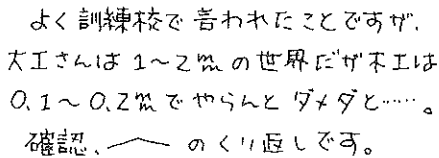 よく訓練校で言われたことですが、
大工さんは1～2㎜の世界だが木工は
0.1～0.2㎜でやらんとダメダと……。
確認、〳〵のくり返しです。